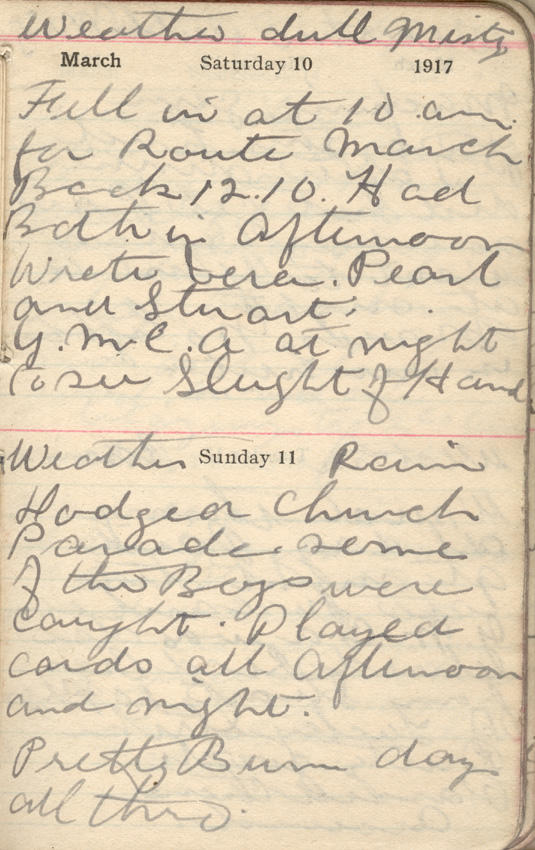 Weather dull Misty
March Saturday 10 1917
Fell in at 10 am.
for Route March
Back 12.10. Had
Bath in Afternoon
Wrote Vera. Pearl
and Stuart.
Y.M.C.A at night
to see Slught of Hand
Weather Sunday 11 Rain
Hodged Church
Parade some
of the Boys were
caught. Played
cards all Afternoon
and night.
Pretty Bum day
all thro.